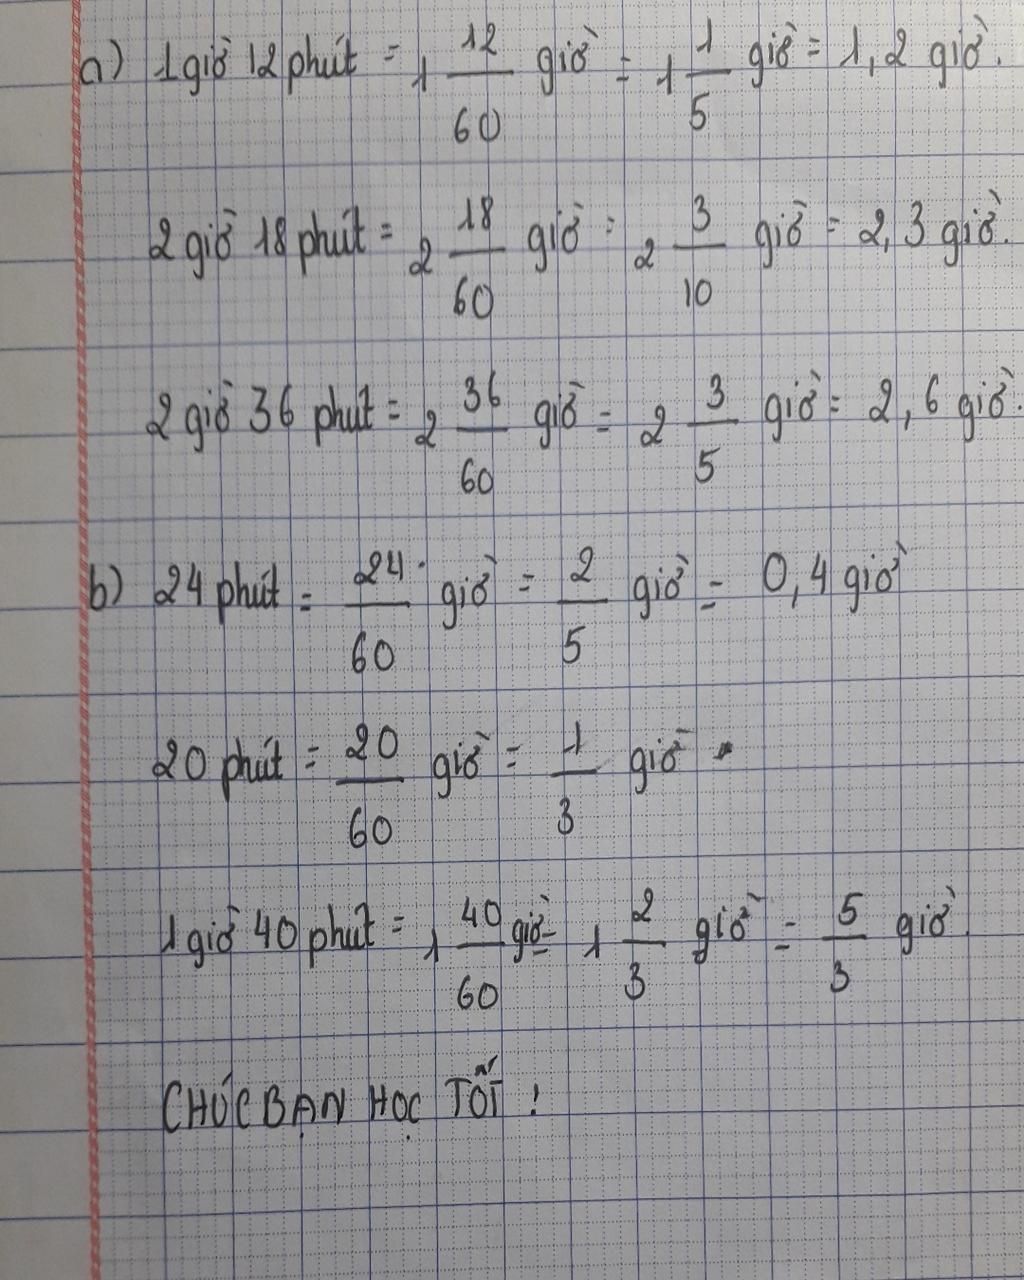 a) 1 giờ 12 phút = 1 12/60 giờ = 1 1/5 giờ = 1,2 giờ.
2 giờ 18 phút = 2 18/60 giờ = 2 3/10 giờ = 2,3 giờ.
2 giờ 36 phút = 2 36/60 giờ = 2 3/5 giờ = 2,6 giờ.
b) 24 phút = 24/60 giờ = 2/5 giờ = 0,4 giờ
20 phút = 20/60 giờ = 1/3 giờ.
1 giờ 40 phút = 1 40/60 giờ = 1 2/3 giờ = 5/3 giờ.
CHÚC BẠN HỌC TỐT !